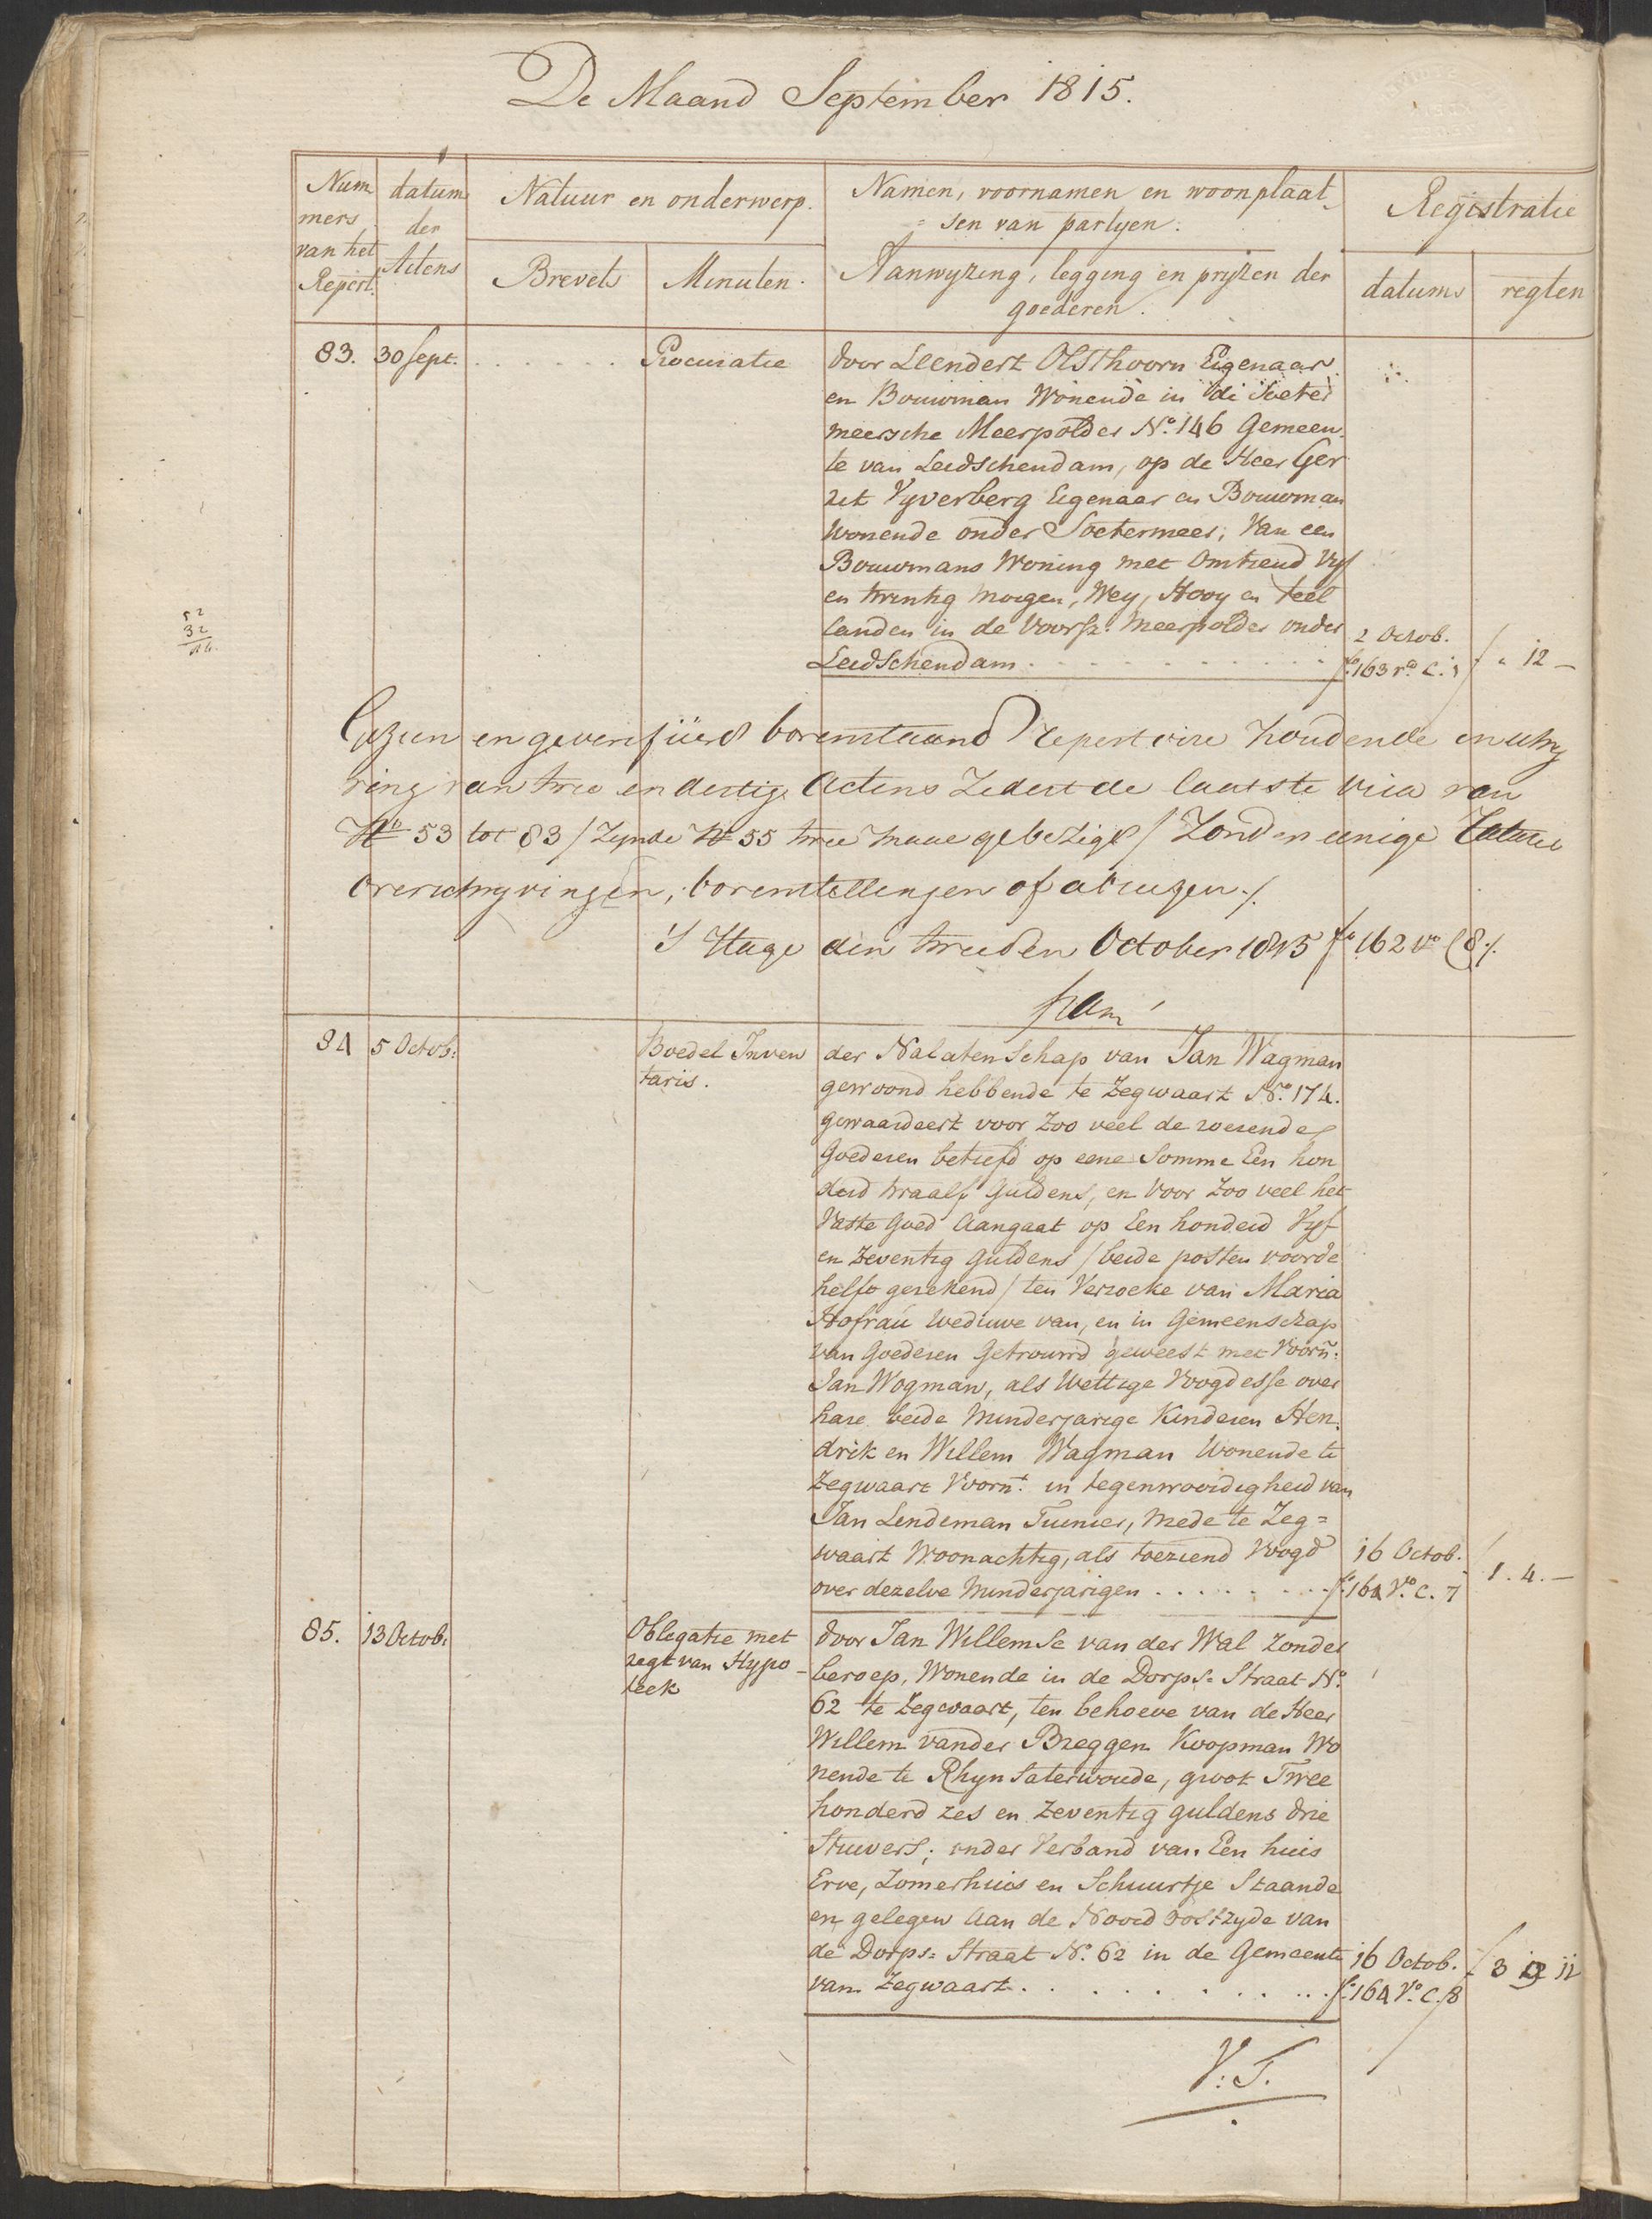 De Maand September 1815.
Num
mers
van het
Repert.
datum
der
Actens
Natuur en onderwerp.
Brevets
Minuten.
Namen, voornamen en woonplaat
= sen van partyen.
Aanwyzing, legging en pryzen der
goederen.
Registratie
datums
regten
83. 30 Sept. . . . . . . Procuratie
door Leendert Olsthoorn Eigenaar
en Bouwman Wonende in de Soeter
meersche Meerpolder No. 146 Gemeen
te van Leidschendam, op de Heer Ger
rit Vyverberg Eigenaar en Bouwman
Wonende onder Soetermeer, Van een
Bouwmans Woning met Omtrend Vyf
en twintig Morgen, Wey, Hooy en teel
landen in de Voorsz. Meerpolder onder
Leidschendam . . . . . . . . . .
2 Octob.
fo. 163 ro. C. 1
" 12 —
52
32
Gezien en geverifiieerd bovenstaand repertoire houdende inschry
ving van twee en dertig Actens Zedert de laatste visa van
No 53 tot 83 / Zynde No 55 twee maal gebezigd / Zonder eenige
overschryvingen, bovenstellingen of
S Hage den tweeden October 1815 fo 162 vo C 8 /.
84 5 Octob:
Boedel Inven
taris.
der Nalatenschap van Jan Wagman
gewoond hebbende te Zegwaart No. 174.
gewaardeert voor Zoo veel de roerende
Goederen betrefd op eene Somme Een hon
derd twaalf Guldens, en Voor Zoo veel het
Vaste Goed Aangaat op Een honderd Vyf
en Zeventig Guldens / beide posten voor de
helft gerekend / ten Verzoeke van Maria
Hofrau Weduwe van, en in Gemeenschap
van Goederen Getrouwd geweest met Voorn:
Jan Wogman, als Wettige Voogdesse over
hare beide Minderjarige Kinderen Hen
drik en Willem Wagman Wonende te
Zegwaart Voornt. in tegenwoordigheid van
Jan Lendeman Tuinier, Mede te Zeg=
waart Woonachtig, als toeziend Voogd
over dezelve Minderjarigen . . . . . . . .
16 Octob.
fo. 164 Vo. C. 7
1. 4. —
85. 13 Octob:
Obligatie met
regt van Hypo-
teek
door Jan Willemse van der Wal Zonder
beroep, Wonende in de Dorps= Straat No.
62 te Zegwaart, ten behoeve van de Heer
Willem vander Breggen Koopman Wo
nende te Rhynsaterwoude, groot Twee
honderd zes en Zeventig guldens drie
Stuvers; onder Verband van Een huis
Erve, Zomerhuis en Schuurtje Staande
en gelegen Aan de Noord oostzyde van
de Dorps= Straat No. 62 in de Gemeente
van Zegwaart. . . . . . . . . . . .
16 Octob.
fo. 164 Vo. C. 8
V: T.